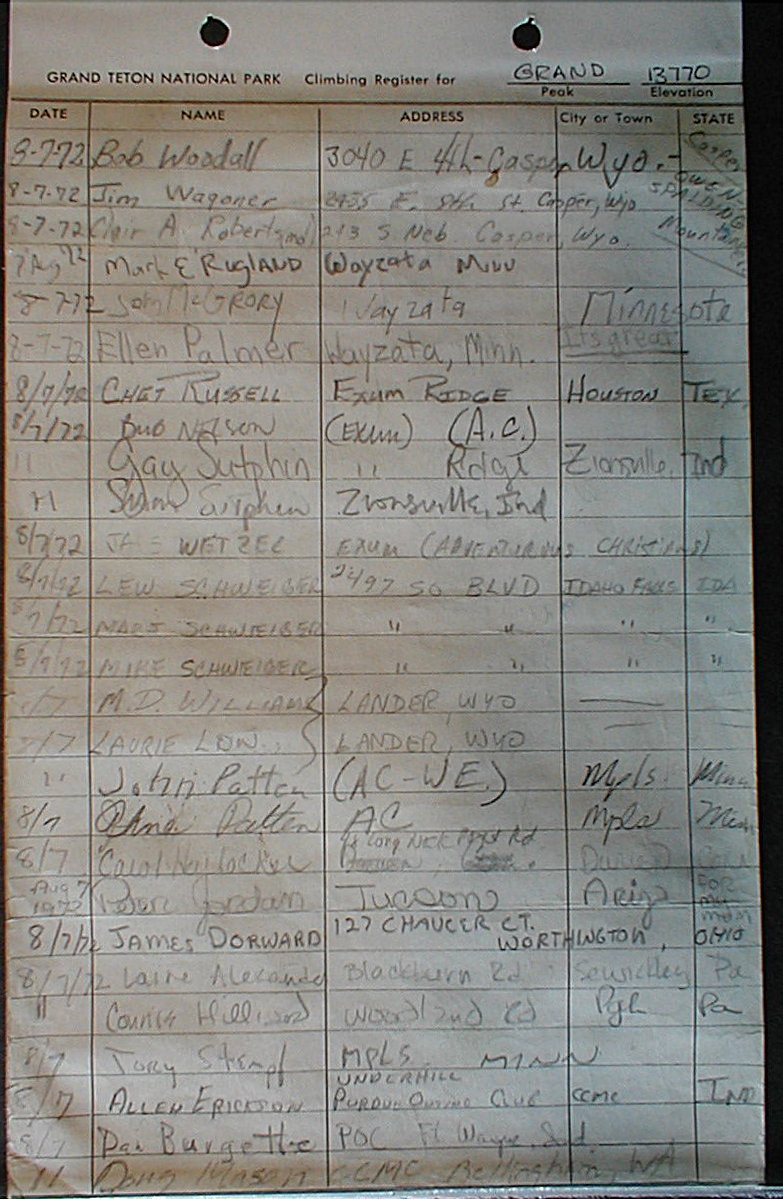 GRAND TETON NATIONAL PARK Climbing Register for GRAND 13770
Peak Elevation
DATE NAME ADDRESS City or Town STATE
8-7-72 Bob Woodall 3040 E 4th - Casper Wyo. - Casper
8-7-72 Jim Wagoner E. 5th St. Casper, Wyo OWEN-SPALDING
8-7-72 Clair A. 243 S Neb. Casper, Wyo.
7 Aug 72 Mark E RUGLAND Wayzata Minn
8-7-72 John McGRORY Wayzata Minnesota
8-7-72 Ellen Palmer Wayzata, Minn. It's great
8/7/72 CHET RUSSELL EXUM RIDGE HOUSTON TEX.
8/7/72 BUD NELSON (EXUM) (A.C.)
11 Gay Sutphin " Ridge Zionsville, Ind
11 Zionsville, Ind
8/7/72 WETZEL EXUM (ADVENTUROUS CHRISTIANS)
8/7/72 LEW SCHWEIBER 2497 SO BLVD IDAHO FALLS IDA
8/7/72 MARJ SCHWEIBER " " " "
8/7/72 MIKE SCHWEIBER " " " "
8/7 M.D. WILLIAMS LANDER, WYO
8/7 LAURIE LANDER, WYO
" John Patten (AC-WE.) Mpls. Minn
8/7 Patten AC Mpls Minn
8/7 Carol
Aug 7 1972 Jordan Tucson Ariz
8/7/72 JAMES DORWARD 127 CHAUCER CT. WORTHINGTON, OHIO
8/7/72 Laine Alexander Blackburn Rd Sewickley Pa
" Connie Hilliard Woodland Rd Pgh Pa
8/7 MPLS MINN
8/7 ALLEN ERICKSON UNDERHILL PURDUE OUTING CLUB CCMC IND
8/7 Dan Burgette POC Ft Wayne, Ind
11 Doug Mason CCMC Bellingham, WA